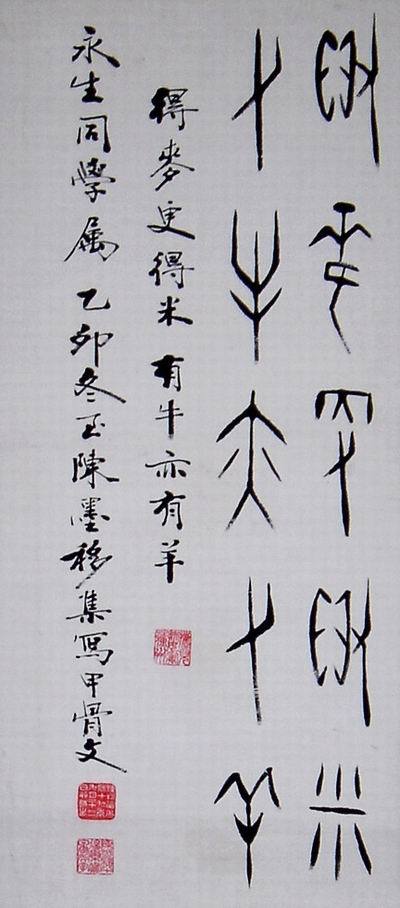 得麥更得米
有牛亦有羊
得麥更得米 有牛亦有羊
永生同學属 乙卯冬至陳墨移集寫甲骨文